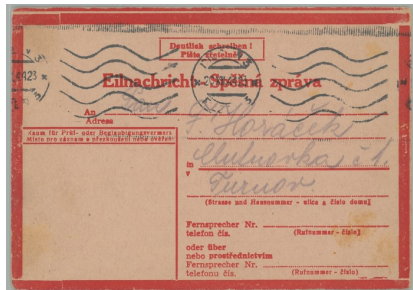 Deutlich schreiben!
Pište čitelně!
Eilnachricht - Spěšná zpráva
An
Adress
F. Horáček
Raum für Prüf- oder Beglaubigungsvermerk
Místo pro záznam o přezkoušení nebo ověření
in
v
Turnov.
(Strasse und Hausnummer - ulice a číslo domu)
Fernsprecher Nr.
telefon čís. (Rufnummer - číslo)
oder über
nebo prostřednictvím
Fernsprecher Nr.
telefonu čís. (Rufnummer - číslo)